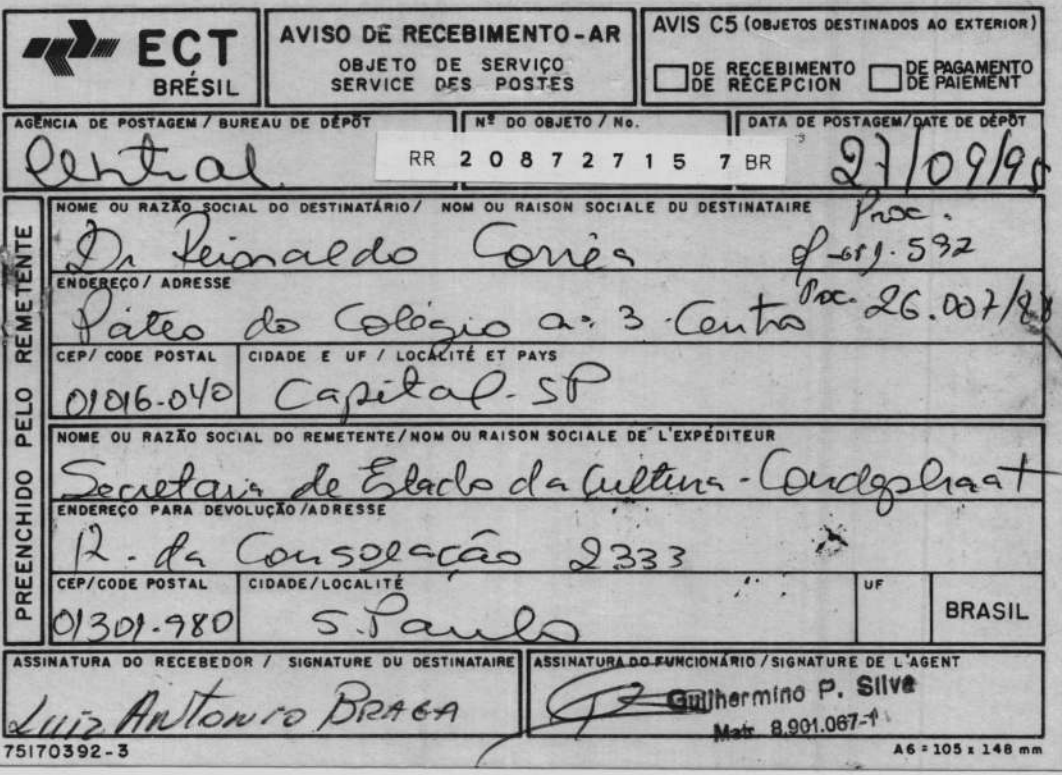 ECT
BRÉSIL
AVISO DE RECEBIMENTO-AR
OBJETO DE SERVIÇO
SERVICE DES POSTES
AVIS C5 (OBJETOS DESTINADOS AO EXTERIOR)
DE RECEBIMENTO
DE RÉCEPCION
DE PAGAMENTO
DE PAIEMENT
AGÊNCIA DE POSTAGEM / BUREAU DE DÉPÔT
Central
Nº DO OBJETO / No.
RR 2 0 8 7 2 7 1 5 7 BR
DATA DE POSTAGEM/DATE DE DÉPÔT
27/09/95
PREENCHIDO PELO REMETENTE
NOME OU RAZÃO SOCIAL DO DESTINATÁRIO/ NOM OU RAISON SOCIALE DU DESTINATAIRE
Proc.
Dr Reinaldo Corrêa
592
ENDEREÇO / ADRESSE
Páteo do Colégio nº 3 - Centro
Proc. 26.007/88
CEP/ CODE POSTAL
01016-040
CIDADE E UF / LOCALITÉ ET PAYS
Capital - SP
NOME OU RAZÃO SOCIAL DO REMETENTE/NOM OU RAISON SOCIALE DE L'EXPÉDITEUR
Secretaria de Estado da Cultura - Condephaat
ENDEREÇO PARA DEVOLUÇÃO/ADRESSE
R. da Consolação 2333
CEP/CODE POSTAL
01301-980
CIDADE/LOCALITÉ
S. Paulo
UF
BRASIL
ASSINATURA DO RECEBEDOR / SIGNATURE DU DESTINATAIRE
Luiz Antonio BRAGA
ASSINATURA DO FUNCIONÁRIO / SIGNATURE DE L'AGENT
Guilhermino P. Silva
Matr. 8.901.067-1
75170392-3
A6 = 105 x 148 mm